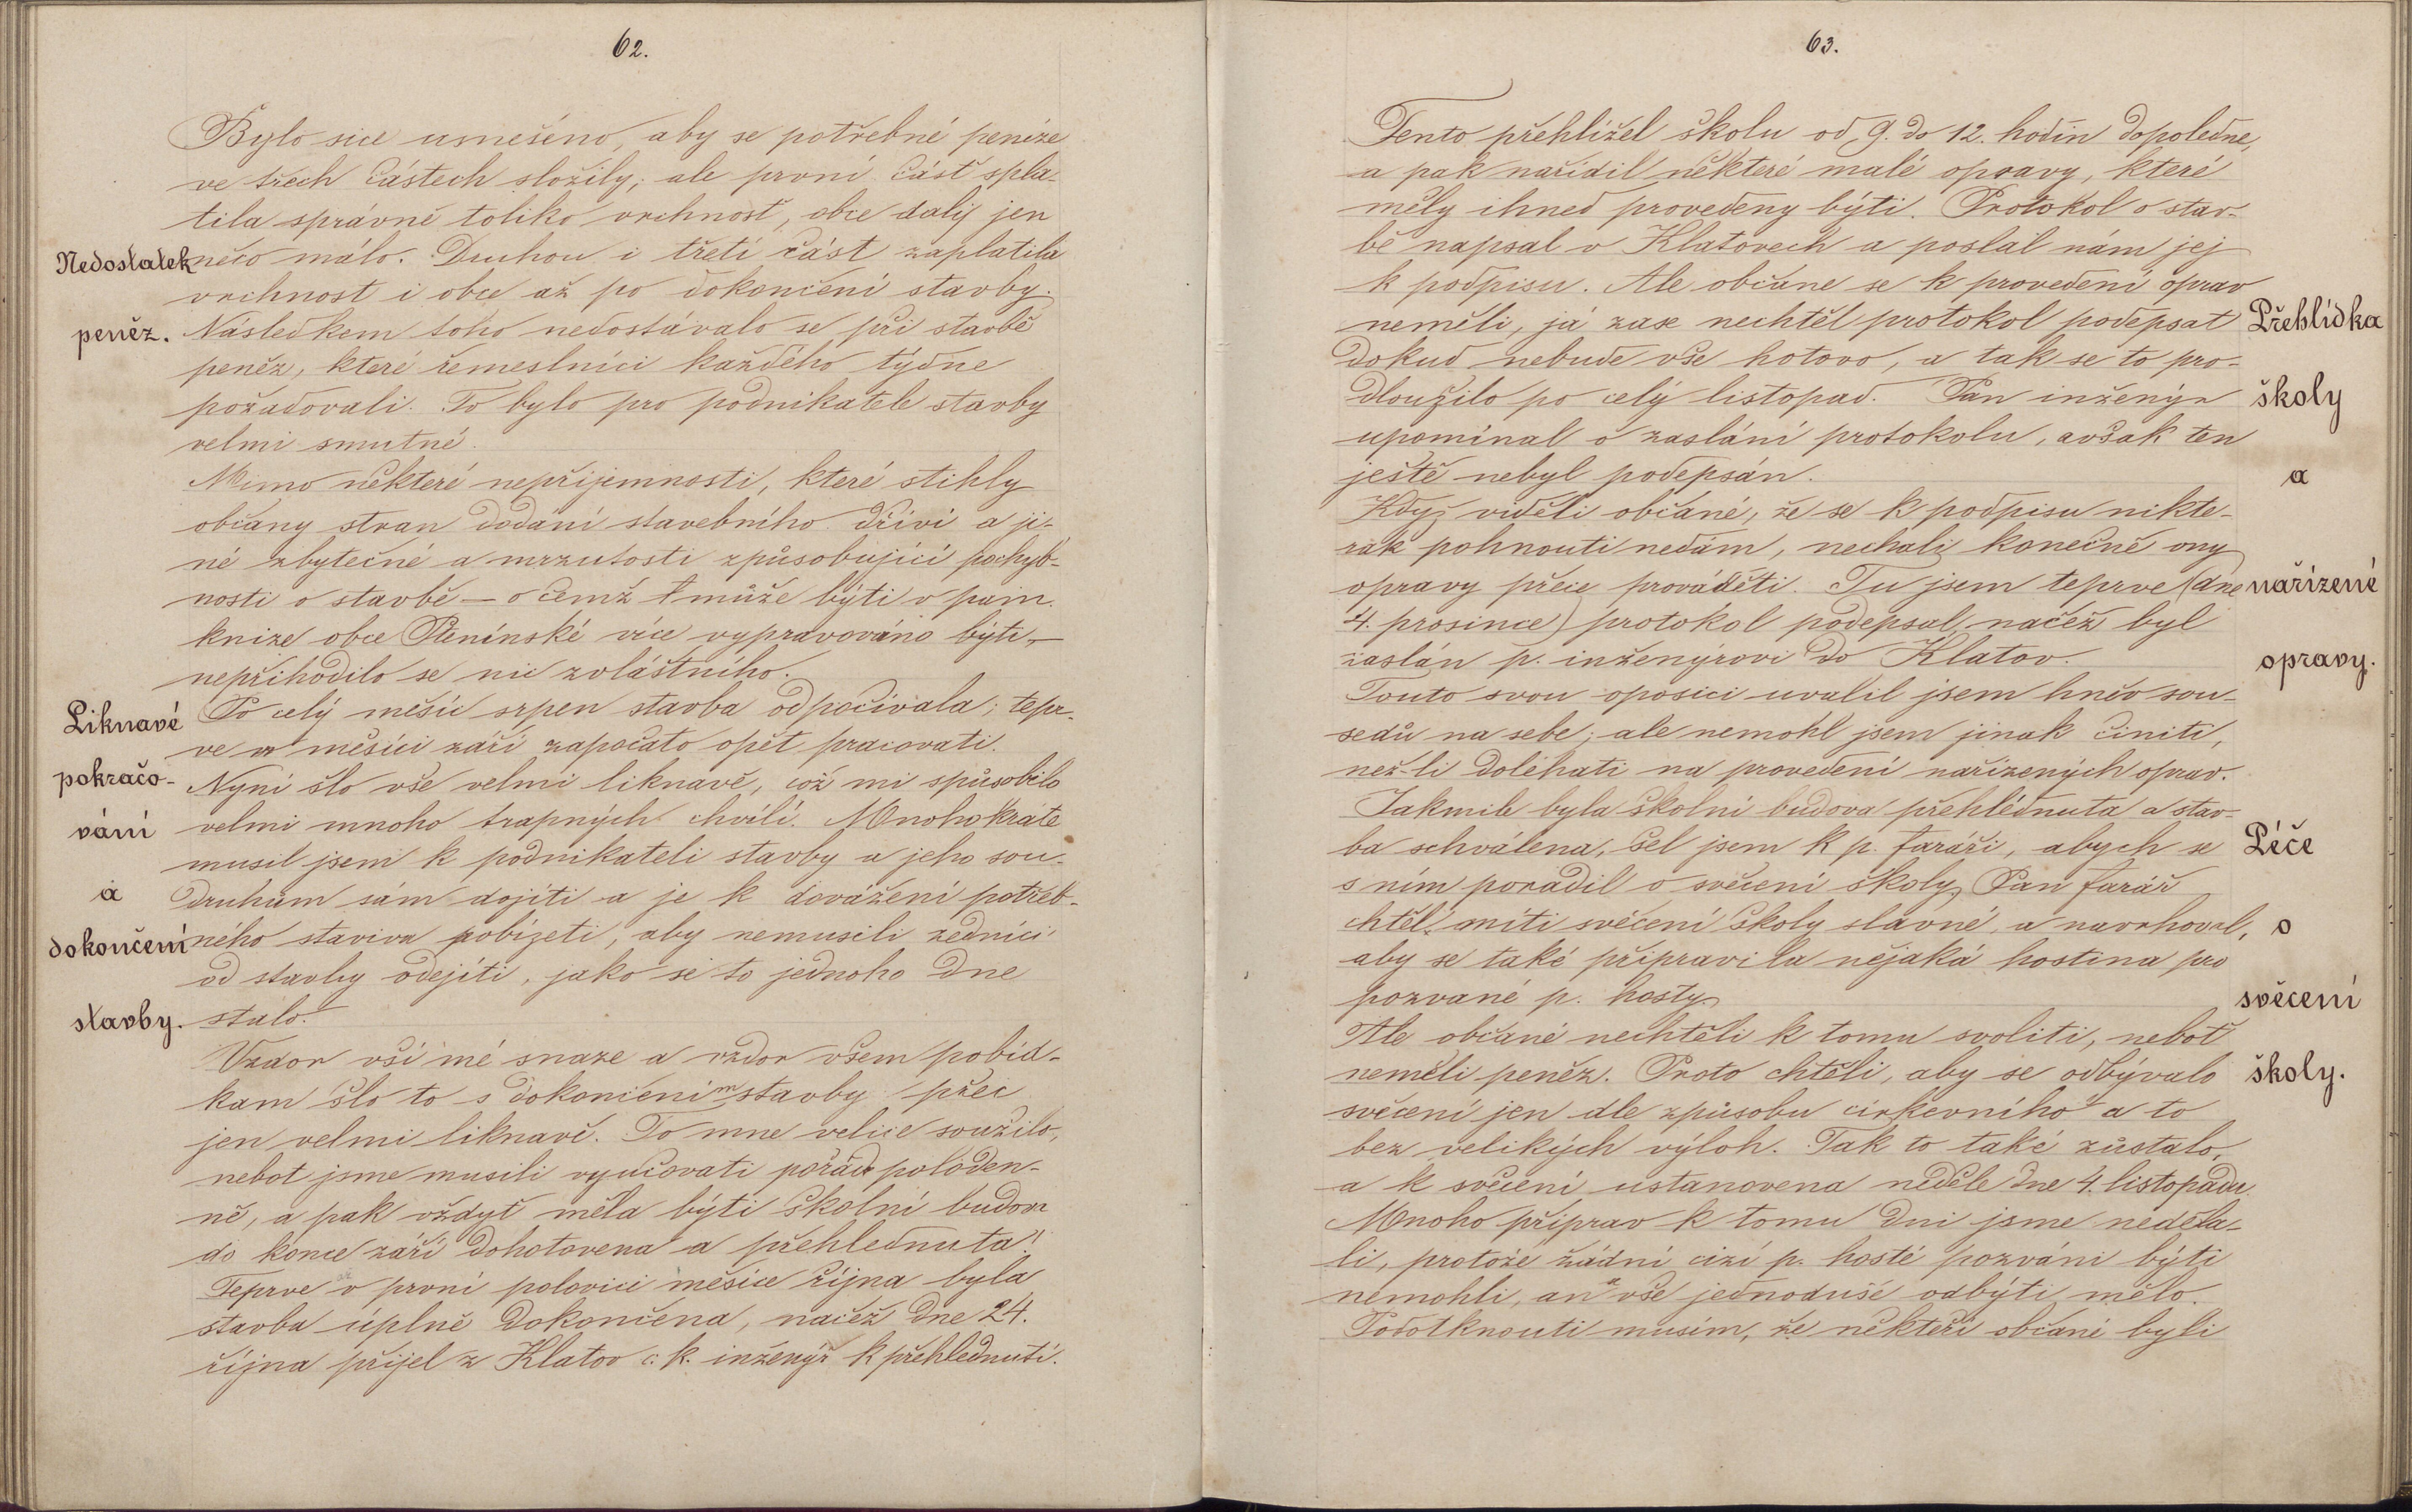 62.
Bylo sice usnešéno, aby se potřebné peníze
ve třech částech složily; ale první část spla-
tila správně toliko vrchnost, obce daly jen
Nedostatek něco málo. Druhou i třetí část zaplatila
vrchnost i obce až po dokončení stavby.
peněz. Následkem toho nedostávalo se při stavbě
peněz, které řemeslníci každého týdne
požadovali. To bylo pro podnikatele stavby
velmi smutné.
Mimo některé nepříjemnosti, které stihly
občany stran dodání stavebního dříví a ji-
né zbytečné a mrzutosti způsobující pochyb-
nosti o stavbě — o čemž může býti v pam.
knize obce Ptenínské více vypravováno býti, —
nepřihodilo se nic zvláštního.
Liknavé Po celý měsíc srpen stavba odpočívala; tepr-
ve v měsíci září započato opět pracovati.
pokračo- Nyní šlo vše velmi liknavě, což mi spůsobilo
vání velmi mnoho trapných chvílí. Mnohokráte
musil jsem k podnikateli stavby a jeho sou-
a druhům sám dojíti a je k dovážení potřeb-
dokončení ného staviva pobízeti, aby nemusili zedníci
od stavby odejíti, jako se to jednoho dne
stavby. stalo.
Vzdor vší mé snaze a vzdor všem pobíd-
kam šlo to s dokončením stavby přec
jen velmi liknavě. To mne velice soužilo,
nebot jsme musili vyučovati pořád poloden-
ně, a pak vždyť měla býti školní budova
do konce září dohotovena a přehlednuta!
Teprve v první polovici měsíce října byla
stavba úplně dokončena, načež dne 24.
října přijel z Klatov c. k. inženýr k přehlednutí.
63.
Tento přehlížel školu od 9. do 12. hodin dopoledne,
a pak nařídil některé malé opravy, které
měly ihned provedeny býti. Protokol o stav-
bě napsal v Klatovech a poslal nám jej
k podpisu. Ale občane se k provedení oprav
neměli, já zase nechtěl protokol podepsat Přehlídka
dokud nebude vše hotovo, a tak se to pro-
dloužilo po celý listopad. Pan inženýr školy
upomínal o zaslání protokolu, avšak ten
ještě nebyl podepsán. a
Když viděli občané, že se k podpisu nikte-
rak pohnouti nedám, nechali konečně ony
opravy přece prováděti. Tu jsem teprve (dne nařízené
4. prosince) protokol podepsal, načež byl
zaslán p. inženýrovi do Klatov. opravy.
Touto svou oposicí uvalil jsem hněv sou-
sedů na sebe; ale nemohl jsem jinak činiti,
než-li doléhati na provedení nařízených oprav.
Jakmile byla školní budova přehlédnuta a stav-
ba schválena, šel jsem k p. faráři, abych se Péče
s ním poradil o svěcení školy. Pan farář
chtěl míti svěcení školy slavné, a navrhoval, o
aby se také připravila nějaká hostina pro
pozvané p. hosty. svěcení
Ale občané nechtěli k tomu svoliti, neboť
neměli peněz. Proto chtěli, aby se odbývalo školy.
svěcení jen dle způsobu církevního a to
bez velikých výloh. Tak to také zůstalo,
a k svěcení ustanovena neděle dne 4. listopadu.
Mnoho příprav k tomu dni jsme neděla-
li, protože žádní cizí p. hosté pozváni býti
nemohli, an vše jednoduše odbýti mělo.
Podotknouti musím, že někteří občané byli